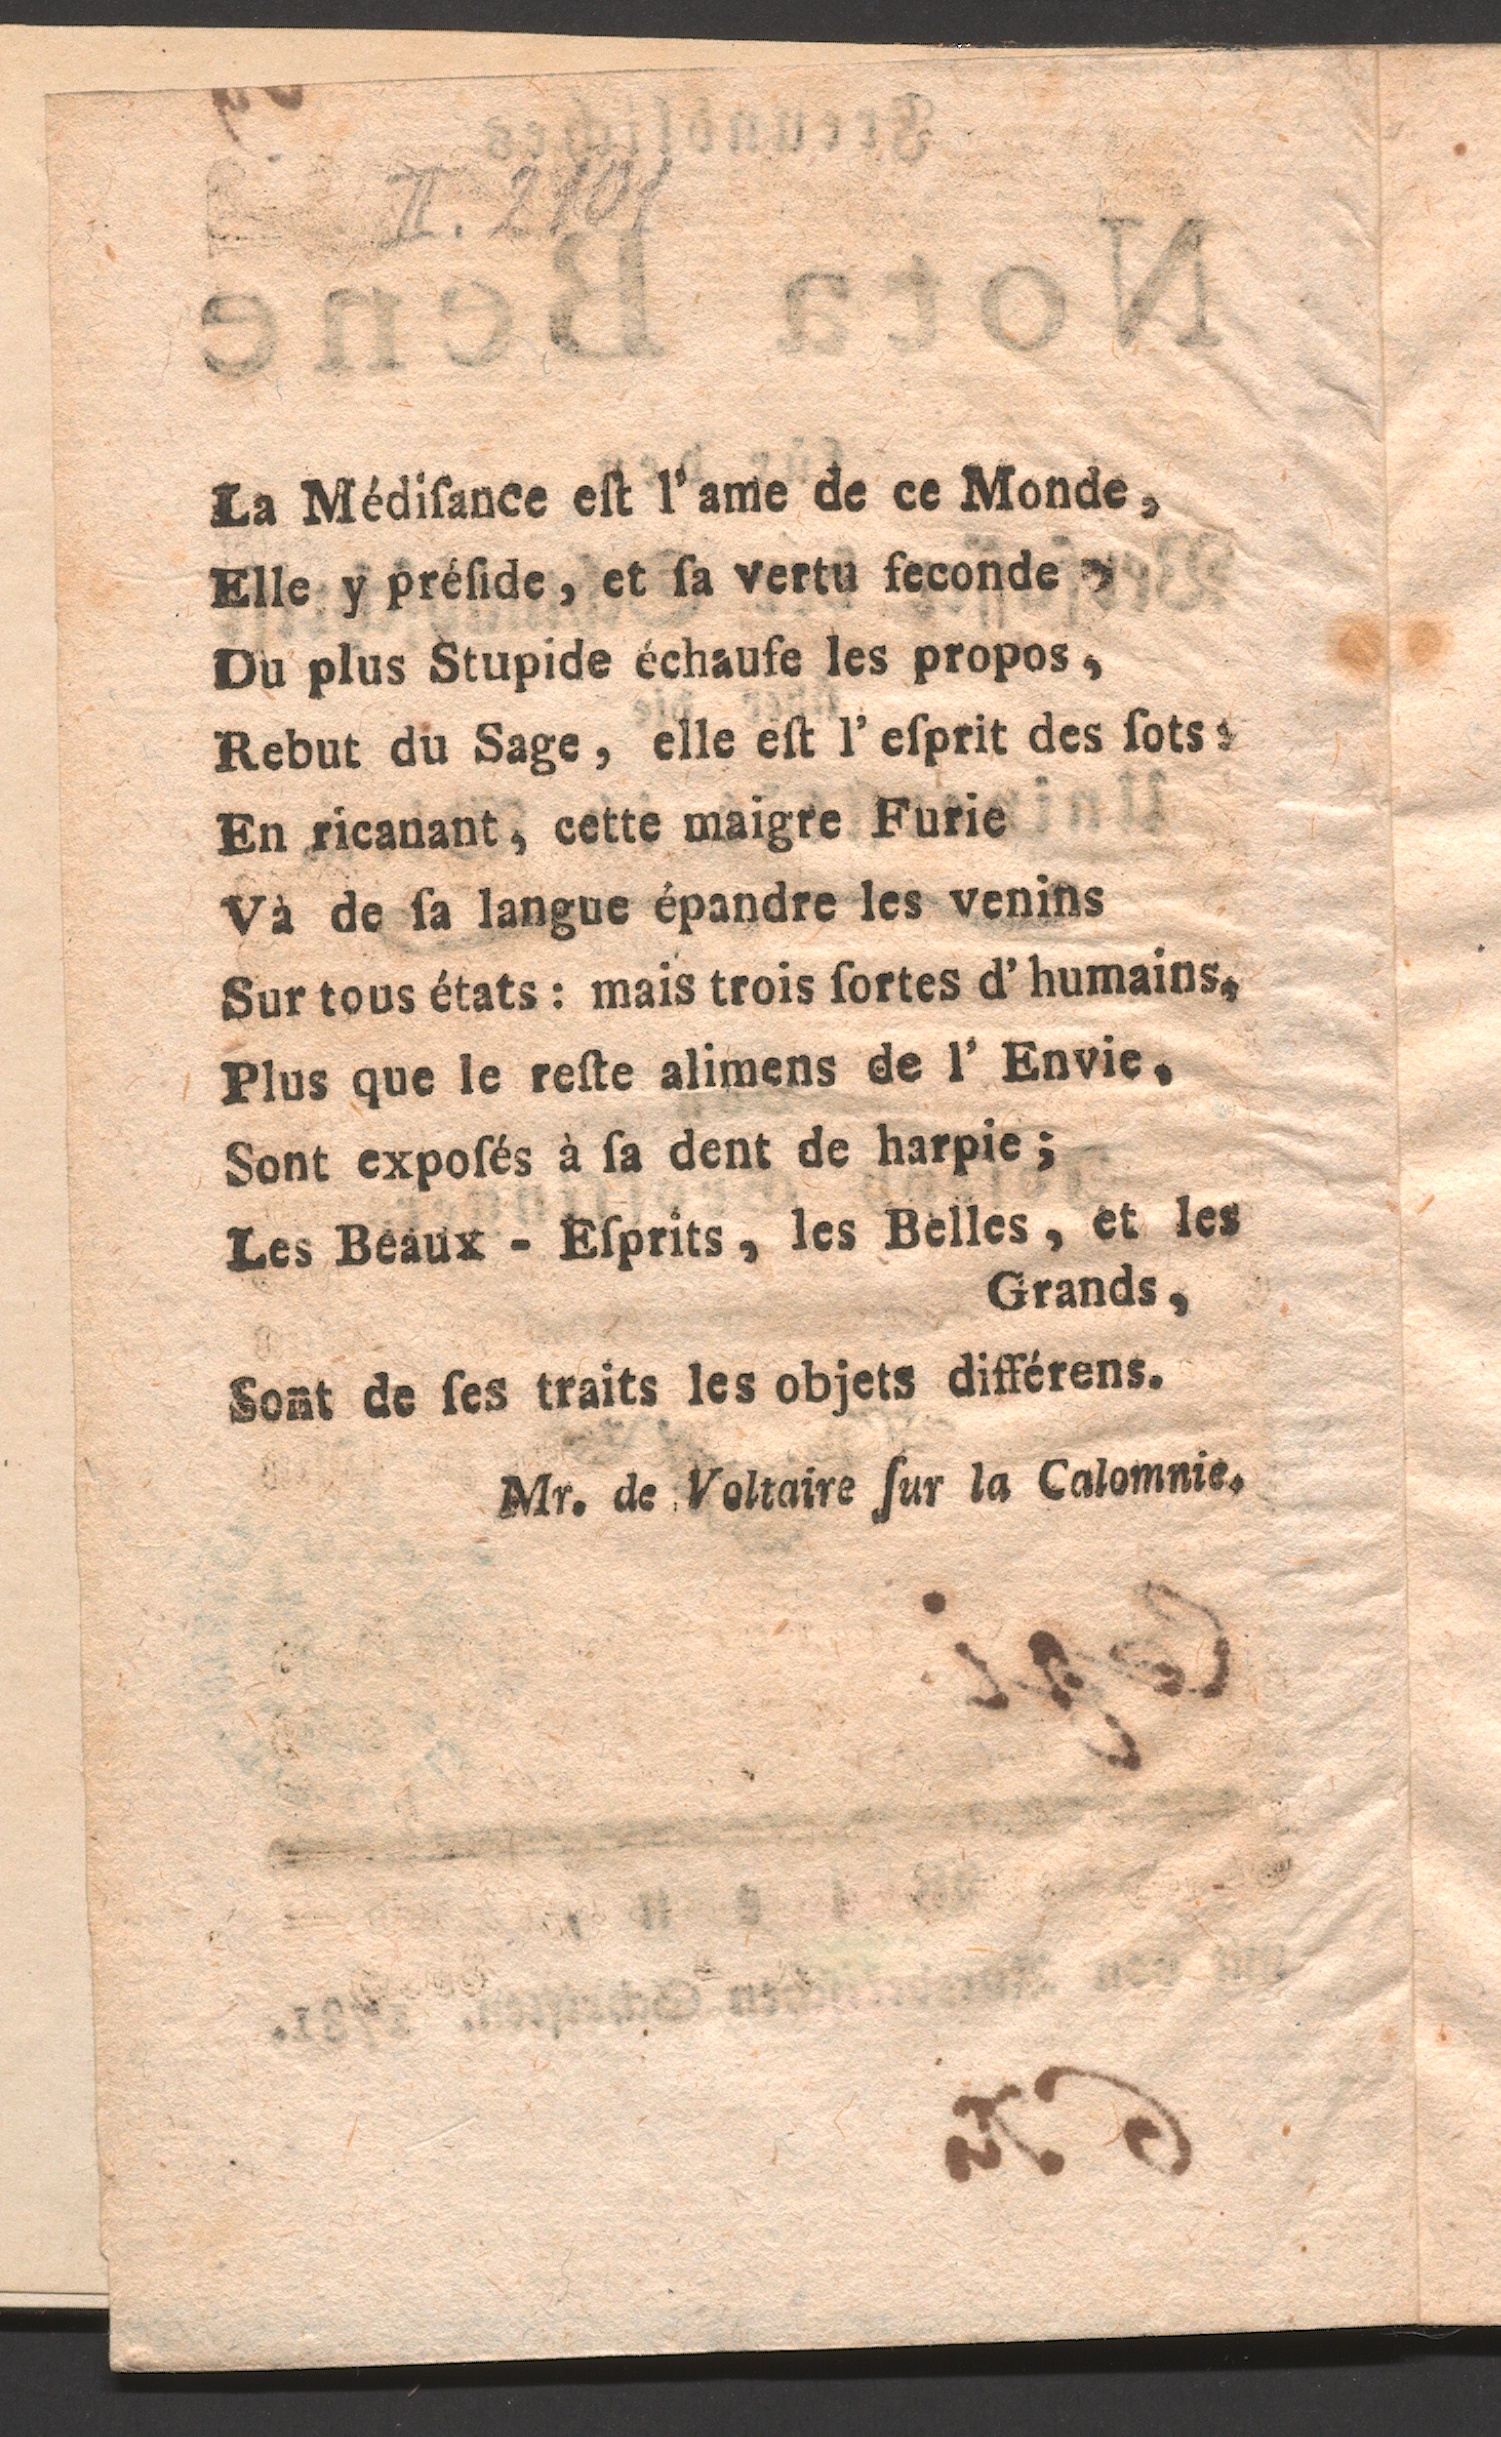 II. 2101
La Médiſance eſt l' ame de ce Monde,
Elle y préſide, et ſa vertu feconde,
Du plus Stupide échaufe les propos,
Rebut du Sage, elle eſt l' eſprit des ſots:
En ricanant, cette maigre Furie
Và de ſa langue épandre les venins
Sur tous états: mais trois ſortes d' humains,
Plus que le reſte alimens de l' Envie,
Sont expoſés à ſa dent de harpie;
Les Beaux - Eſprits, les Belles, et les
Grands,
Sont de ſes traits les objets différens.
Mr. de Voltaire ſur la Calomnie.